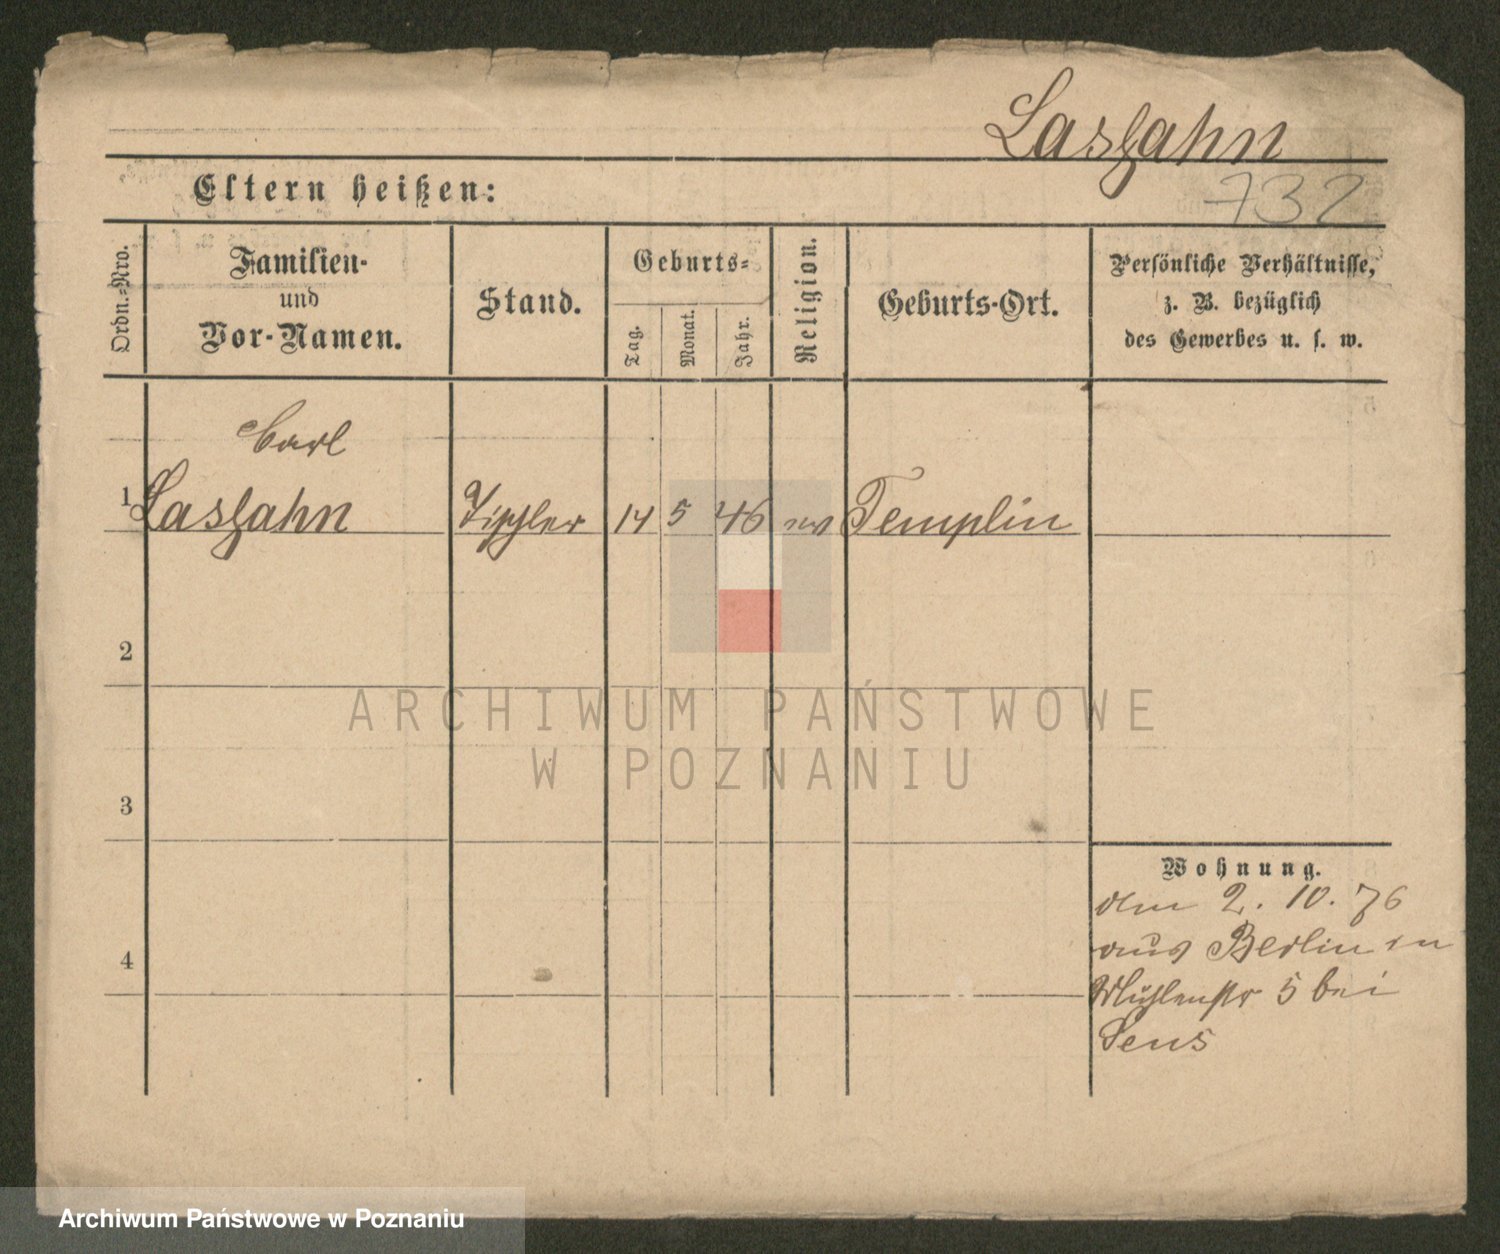 Laszahn
732
Eltern heißen:
Ordn.-Nro.
Familien-
und
Vor-Namen.
Stand.
Geburts-
Tag.
Monat.
Jahr.
Religion.
Geburts-Ort.
Persönliche Verhältnisse,
z. B. bezüglich
des Gewerbes u. s. w.
Carl
1 Laszahn Tischler 14 5 46 ev Templin
2
3
4
Wohnung.
den 2. 10. 76
aus Berlin in
Mühlenstr 5 bei
Sens
ARCHIWUM PAŃSTWOWE
W POZNANIU
Archiwum Państwowe w Poznaniu